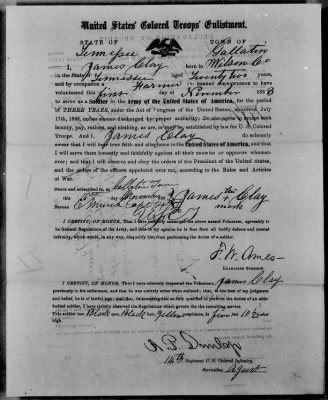 United States' Colored Troops Enlistment.
STATE OF TOWN OF
Tennessee Gallatin
I, James Clay born in Wilson Co
in the State of Tennessee aged Twenty two years,
and by occupation a Farmer DO HEREBY ACKNOWLEDGE to have
volunteered this first day of November 1863
to serve as a Soldier in the Army of the United States of America, for the period
of THREE YEARS, under the Act of Congress of the United States, approved July
17th, 1862, unless sooner discharged by proper authority: Do also agree to accept such
bounty, pay, rations, and clothing, as are, or may be, established by law for U. S. Colored
Troops. And I, James Clay do solemnly
swear that I will bear true faith and allegiance to the United States of America, and that
I will serve them honestly and faithfully against all their enemies or opposers whomso-
ever; and that I will observe and obey the orders of the President of the United States, and
the orders of the officers appointed over me, according to the Rules and Articles
of War.
Sworn and subscribed to, at Gallatin Tenn
this day of November 1863 James his + Clay
Before mark
I CERTIFY, ON HONOR, That I have carefully examined the above named Volunteer, agreeably to
the General Regulations of the Army, and that in my opinion he is free from all bodily defects and mental
infirmity, which would, in any way, disqualify him from performing the duties of a soldier.
F. W. Ames
EXAMINING SURGEON.
I CERTIFY, ON HONOR, That I have minutely inspected the Volunteer, James Clay
previously to his enlistment, and that he was entirely sober when enlisted; that, to the best of my judgment
and belief, he is of lawful age; and that, in accepting him as duly qualified to perform the duties of an able-
bodied soldier, I have strictly observed the Regulations which govern the recruiting service.
This soldier has Black eyes, Black hair, Yellow complexion, is five feet 10 1/2 inches
high.
14th Regiment U. S. Colored Infantry,
Recruiting Agent